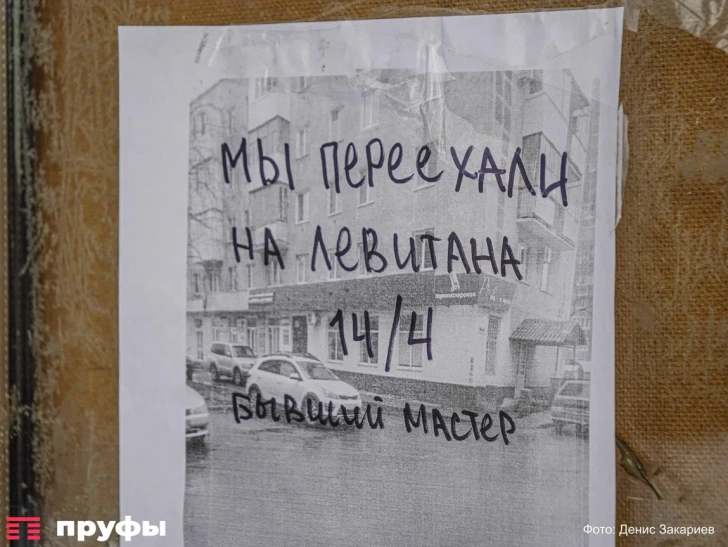 мы переехали
на Левитана
14/4
бывший мастер
пруфы
Фото: Денис Закариев